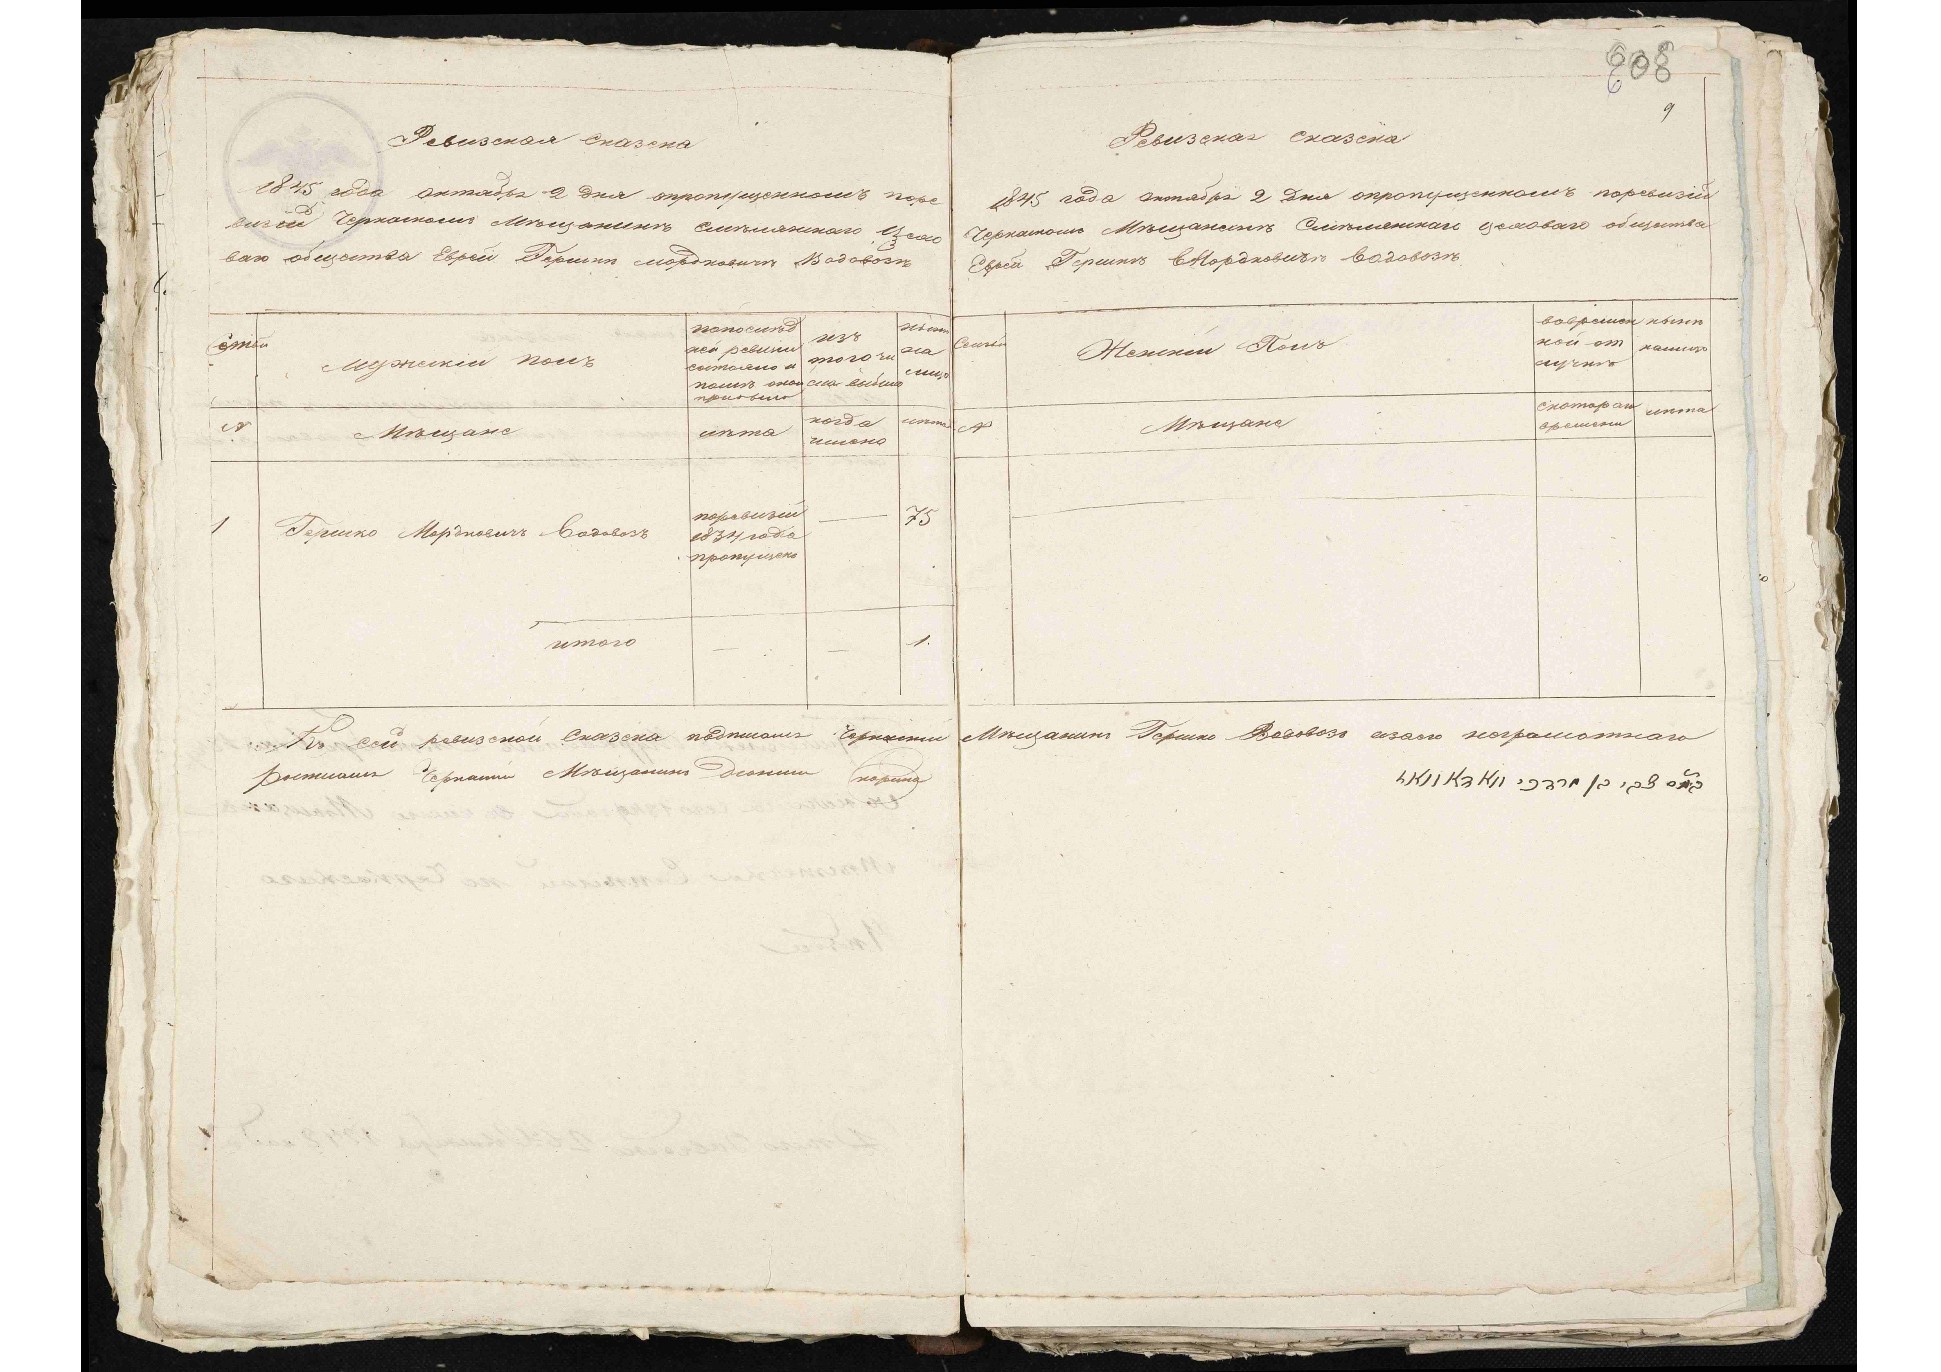 Ревизская сказска
1845 года октября 2 дня опропущенномъ поре
визіи Черкаскомъ Мѣщанинѣ Смѣлянскаго Цехо
ваго общества Еврей Гершкѣ Мордковичѣ Водовозѣ
Семьи
Мужескій полъ
напослѣд
ней ревизіи
состояло и
послѣ оной
прибыло
изъ
того чи
сла выбыло
нынѣ
на
лицо
№
Мѣщане
лѣта
когда
имено
лѣта
1
Гершко Мордковичъ Водовозъ
поревизіи
1834 года
пропущенъ
75
итого
1
608
9
Ревизская сказска
1845 года октября 2 дня опропущенномъ поревизіи
Черкаскомъ Мѣщанинѣ Смѣлянскаго цеховаго общества
Еврей Гершкѣ Мордковичѣ Водовозѣ
Семьи
Женскій Полъ
вовремен
ной от
лучкѣ
нынѣ
налицо
№
Мѣщане
скотораго
времени
лѣта
Къ сей ревизской сказска подписомъ Черкаскій Мѣщанинъ Гершко Водовозъ азаего неграмотнаго
росписался Черкаскій Мѣщанинъ
צבי בן מרדכי וואדאוואז